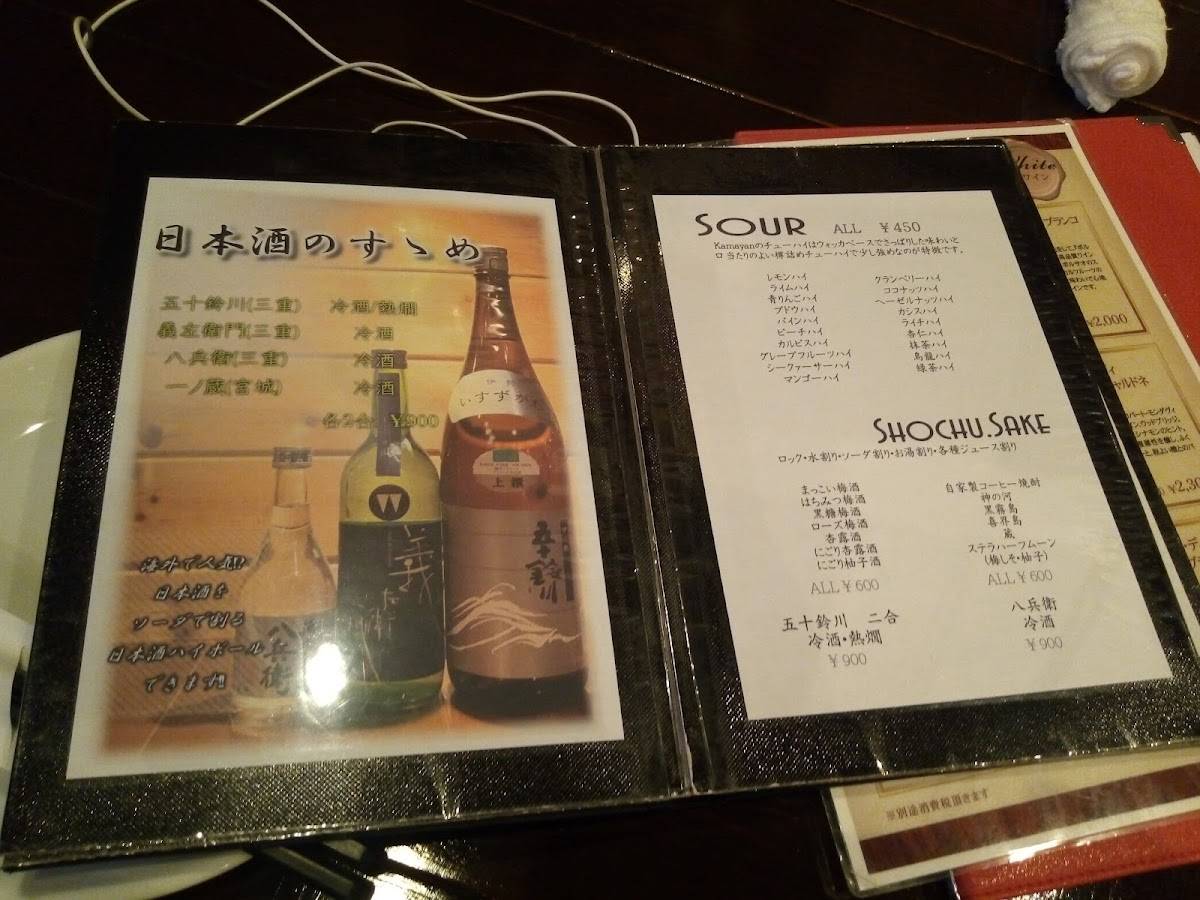 日本酒のすゝめ
五十鈴川(三重) 冷酒/熱燗
義左衛門(三重) 冷酒
八兵衛(三重) 冷酒
一ノ蔵(宮城) 冷酒
各2合 ¥900
海外で人気!!
日本酒を
ソーダで割る
日本酒ハイボール
できます!!
いすずがわ
上撰
五十鈴川
W
義
八兵衛
SOUR ALL ¥450
Kamayanのチューハイはウォッカベースでさっぱりした味わいと
口当たりのよい樽詰めチューハイで少し強めなのが特徴です。
レモンハイ
ライムハイ
青りんごハイ
ブドウハイ
パインハイ
ピーチハイ
カルピスハイ
グレープフルーツハイ
シークァーサーハイ
マンゴーハイ
クランベリーハイ
ココナッツハイ
ヘーゼルナッツハイ
カシスハイ
ライチハイ
杏仁ハイ
抹茶ハイ
烏龍ハイ
緑茶ハイ
SHOCHU.SAKE
ロック・水割り・ソーダ割り・お湯割り・各種ジュース割り
まっこい梅酒
はちみつ梅酒
黒糖梅酒
ローズ梅酒
杏露酒
にごり杏露酒
にごり柚子酒
ALL¥600
自家製コーヒー焼酎
神の河
黒霧島
喜界島
蔵
ステラハーフムーン
(梅しそ・柚子)
ALL¥600
五十鈴川 二合
冷酒・熱燗
¥900
八兵衛
冷酒
¥900
White
ワイン
ブランコ
¥2,000
ャルドネ
¥2,30
※別途消費税頂きます